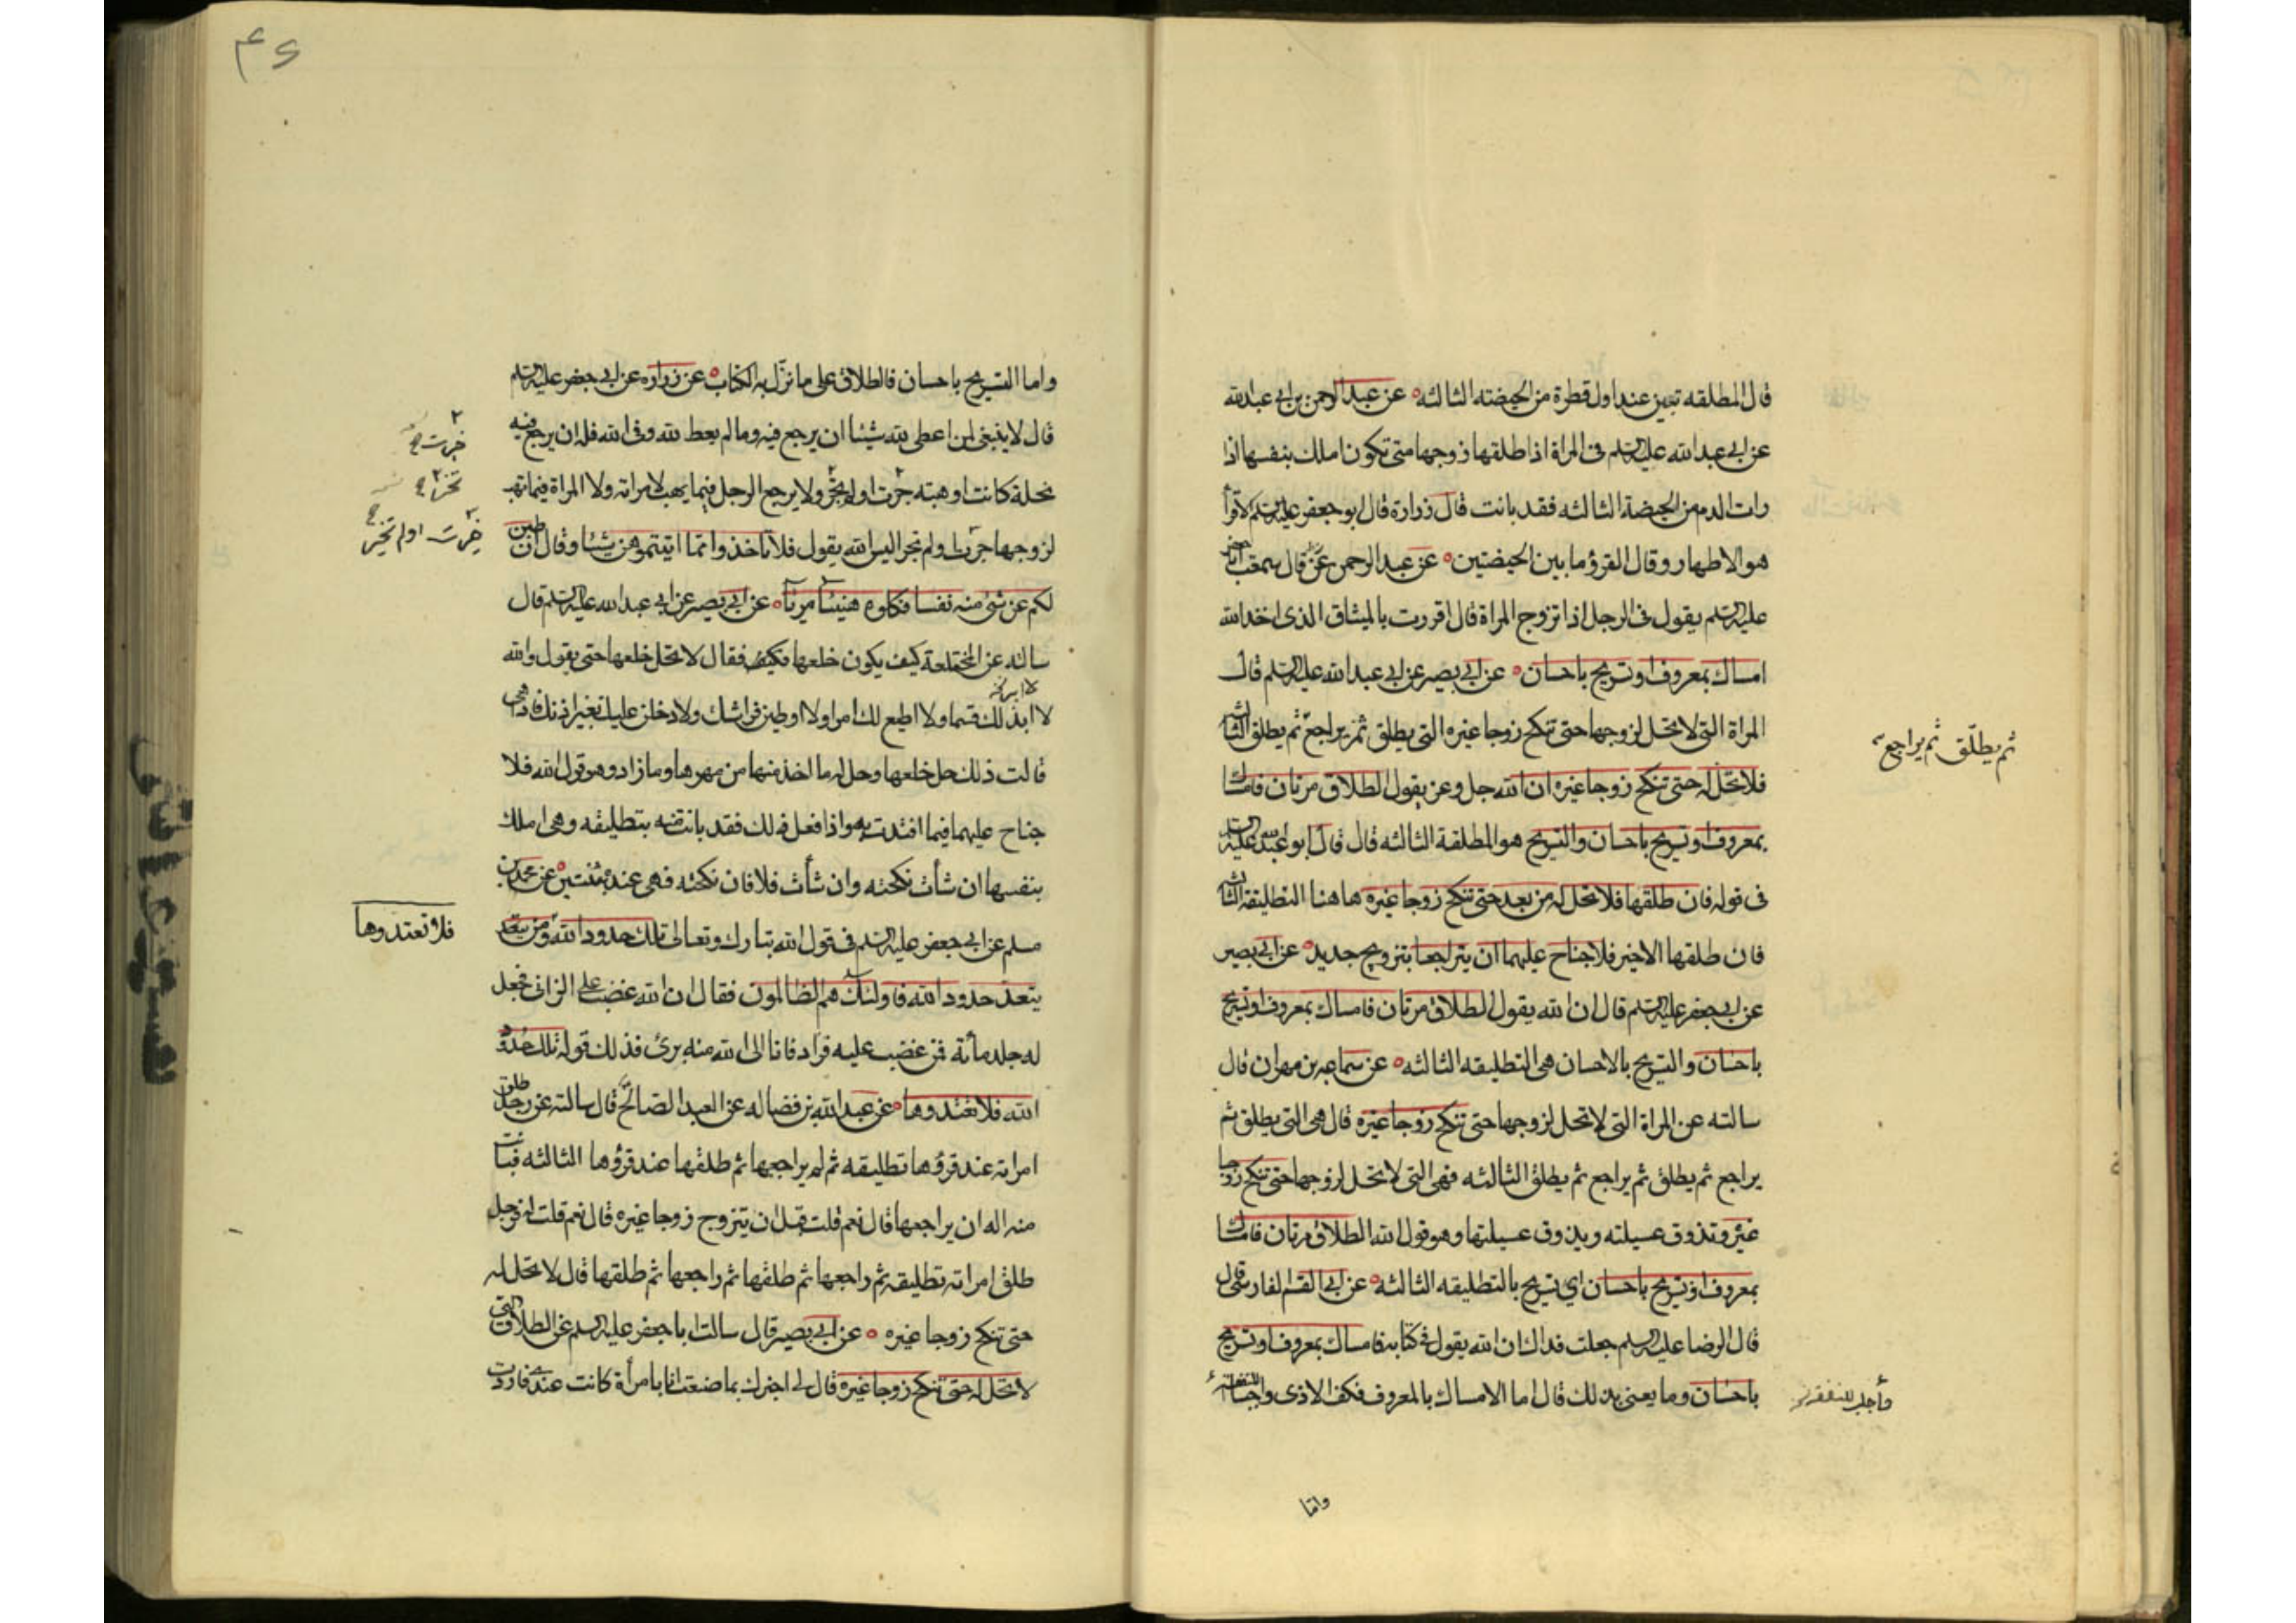 قال المطلقه تبين عند اول قطرة من الحيضته الثالثه عن عبد الرحمن بن ابي عبد الله
عن ابي عبد الله عليه السلم في المراة اذا طلقها زوجها متى تكون املك بنفسها اذا
رات الدم من الحيضة الثالثه فقد بانت قال زرارة قال ابو جعفر عليه السلم الاقرأ
هو الاطهار وقال القرؤ ما بين الحيضتين عن عبد الرحمن قال سمعت ابا جعفر
عليه السلم يقول في الرجل اذا تزوج المراة قال اقررت بالميثاق الذي اخذ الله
امساك بمعروف او تسريح باحسان عن ابي بصير عن ابي عبد الله عليه السلم قال
المراة التي لا تحل لزوجها حتى تنكح زوجا غيره التي يطلق ثم يراجع ثم يطلق الثالثة
ثم يطلّق ثم يراجع
فلا تحل له حتى تنكح زوجا غيره ان الله جل وعز يقول الطلاق مرتان فامساك
بمعروف او تسريح باحسان والتسريح هو المطلقة الثالثه قال قال ابو عبد الله عليه السلم
في قوله فان طلقها فلا تحل له من بعد حتى تنكح زوجا غيره هاهنا التطليقه الثالثة
فان طلقها الاخير فلا جناح عليهما ان يتراجعا بتزويج جديد عن ابي بصير
عن ابي جعفر عليه السلم قال ان الله يقول الطلاق مرتان فامساك بمعروف او تسريح
باحسان والتسريح بالاحسان هي التطليقه الثالثه عن سماعه بن مهران قال
سالته عن المراة التي لا تحل لزوجها حتى تنكح زوجا غيره قال هي التي يطلق ثم
يراجع ثم يطلق ثم يراجع ثم يطلق الثالثه فهي التي لا تحل لزوجها حتى تنكح زوجا
غيره وتذوق عسيلته ويذوق عسيلتها وهو قول الله الطلاق مرتان فامساك
بمعروف او تسريح باحسان اي تسريح بالتطليقه الثالثه عن ابي القسم الفارسي قال
قال الرضا عليه السلم جعلت فداك ان الله يقول في كتابه فامساك بمعروف او تسريح
باحسان وما يعنى بذلك قال اما الامساك بالمعروف فكف الاذى واجباء النفقة
واما
۴۶
واما التسريح باحسان فالطلاق على ما نزل به الكتاب عن زراره عن ابي جعفر عليه السلم
قال لا ينبغي لمن اعطى لله شيئا ان يرجع فيه وما لم يعط لله وفي الله فله ان يرجع فيه
نحلة كانت او هبته جزت او لم تجز ولا يرجع الرجل فيما يهب لامراته ولا المراة فيما تهب
لزوجها جزت او لم تجز اليس الله يقول فلا تاخذوا مما اتيتموهن شيئا وقال ان طبن
لكم عن شئ منه نفسا فكلوه هنيئا مريئا عن ابي بصير عن ابي عبد الله عليه السلم قال
سالته عن المختلعة كيف يكون خلعها فقال لا تحل خلعها حتى يقول والله
لا ابر لك قسما ولا اطيع لك امرا ولا اوطين فراشك ولا دخلن عليك بغير اذنك فاذا هى
قالت ذلك حل خلعها وحل له ما اخذ منها من مهرها وما زاد وهو قول الله فلا
جناح عليهما فيما افتدت به واذا فعل ذلك فقد بانت منه بتطليقه وهى املك
بنفسها ان شأت نكحته وان شأت فلا فان نكحته فهى عنده بثنتين عن محمد بن
مسلم عن ابي جعفر عليه السلم في قول الله تبارك وتعالى تلك حدود الله ومن يتعد
فلا تعتدوها
يتعد حدود الله فاولئك هم الظالمون فقال ان الله غضب على الزاني فجعل
له جلد مائة فمن غضب عليه فزاد فانا الى الله منه برئ فذلك قوله تلك حدود
الله فلا تعتدوها عن عبد الله بن فضاله عن العبد الصالح قال سالته عن رجل طلق
امراته عند قرؤها تطليقه ثم لم يراجعها ثم طلقها عند قرؤها الثالثه فبانت
منه اله ان يراجعها قال نعم قلت قبل ان يتزوج زوجا غيره قال نعم قلت له فرجل
طلق امراته تطليقه ثم راجعها ثم طلقها ثم راجعها ثم طلقها قال لا تحل له
حتى تنكح زوجا غيره عن ابي بصير قال سالت ابا جعفر عليه السلم عن الطلاق التي
لا تحل له حتى تنكح زوجا غيره قال لي اخبرك بما صنعت انا بامرأة كانت عندى فاردت